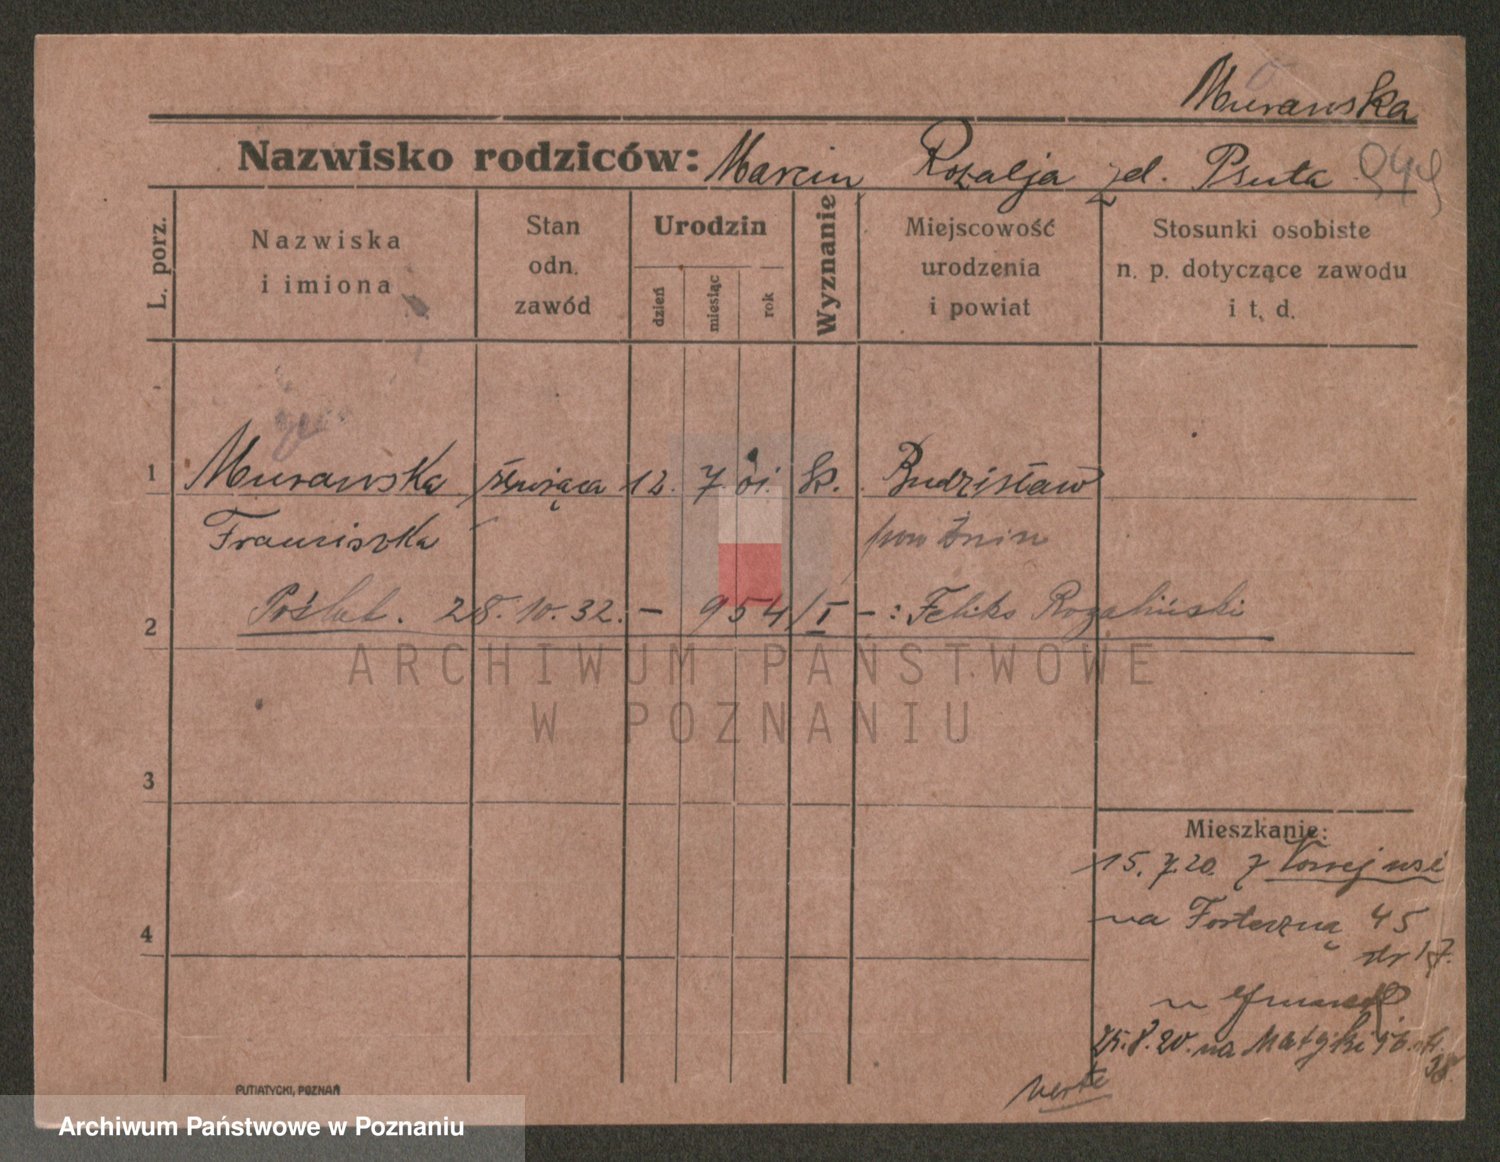 Murawska
Nazwisko rodziców: Marcin Rozalja zd. Psuta
L. porz.
Nazwiska
i imiona
Stan
odn.
zawód
Urodzin
dzień
miesiąc
rok
Wyznanie
Miejscowość
urodzenia
i powiat
Stosunki osobiste
n. p. dotyczące zawodu
i t. d.
1 Murawska służąca 12. 7. 01. k. Budzisław
Franciszka pow Żnin
2 Poślub. 28.10.32. – 954/I – : Feliks Rogaliński
ARCHIWUM PAŃSTWOWE
W POZNANIU
3
Mieszkanie:
15.7.20 z
na Forteczną 45
4
dr 17.
u
25.8.20. na Matejki
verte
PUTIATYCKI, POZNAŃ
Archiwum Państwowe w Poznaniu